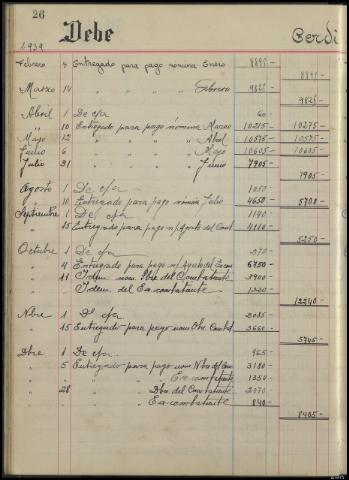 26
Debe
Perdi
1939
Febrero 4 Entregado para pago nómina Enero 8895-
8895-
Marzo 14 " " " " Febrero 9825-
9825-
Abril 1 De c/a 60-
" 10 Entregado para pago nómina Marzo 10215- 10275-
Mayo 12 " " " " Abril 10575- 10575-
Junio 6 " " " " Mayo 10605- 10605-
Julio 31 " " " " Junio 7905-
7905-
Agosto 1 De c/a 1050-
" 10 Entregado para pago nómina Julio 4650- 5700-
Septiembre 1 De c/a 1140-
" 15 Entregado para pago n/Agosto del Combt 4110-
5250-
Octubre 1 De c/a 270-
" 4 Entregado para pago n/Agosto del Excom 6750-
" 11 Idem nom Sbre del Combatiente 3900-
" Idem del Ex-combatiente 1320-
12240-
Nbre 1 De c/a 2085-
" 15 Entregado para pago nom Obre Combat 3660-
5745-
Dbre 1 De c/a 965-
" 5 Entregado para pago nom Nbre del Com 3180-
" " " " Ex-combatiente 1350-
" 28 " " Dbre del Combatiente 2070-
" " " Ex-combatiente 840-
8405-